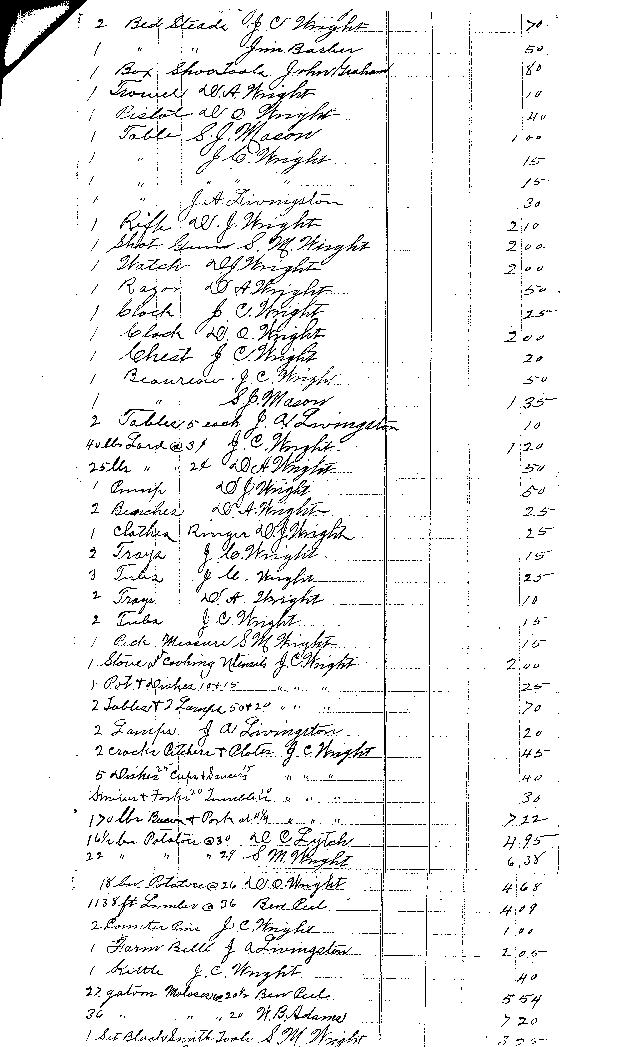 2 Bed Steads J C Wright 70
1 " " Jim Barber 50
1 Box Shoe Tools John Graham 80
1 Trowel D A Wright 10
1 Pistol D O Wright 40
1 Table S. J. Mason 1 00
1 " J C. Wright 15
1 " " " 15
1 " J A Livingston 30
1 Rifle D. J. Wright 2 10
1 Shot Gun S. M Wright 2 00
1 Watch D J Wright 2 00
1 Razor D A Wright 50
1 Clock J C. Wright 25
1 Clock D O. Wright 2 00
1 Chest J C Wright 20
1 Beaureau J. C. Wright 50
1 " S J. Mason 1 35
2 Tables 5 each J. A Livingston 10
40 lbs Lard @ 3¢ J. C. Wright 1 20
25 lbs " " 2¢ D A Wright 50
1 Pump D J Wright 50
2 Benches D. A. Wright 25
1 Clothes Ringer D. J. Wright 25
2 Trays J C. Wright 15
3 Tubs J C. Wright 25
2 Trays D. A. Wright 10
2 Tubs J. C. Wright 15
1 Peck Measure S M Wright 15
1 Stove & Cooking Utensils J C Wright 2 00
1 Pot & Dishes 10 + 15 " " " 25
2 Tables & 2 Lamps 50 + 20 " " " 70
2 Lamps J A Livingston 20
2 Crocks Pitchers & Plates J. C Wright 45
5 Dishes Cups & Saucers " " " 40
& Forks 20 10 " " " 30
170 lbs Bacon & Pork at 4¼ " " " 7 22
16½ bu Potatoes @ 30 D C Lytch 4 95
22 " " " 29 S M Wright 6 38
18 bu Potatoes @ 26 D O Wright 4 68
1138 ft Lumber @ 36 Ben Peel 4 09
2 Counter J C Wright 1 00
1 Farm Bell J A Livingston 2 05
1 Kettle J. C. Wright 40
27 galons Moloses @ 20½ Ben Peel 5 54
36 " " " 20 W. B. Adams 7 20
1 Set Black Smith Tools S M Wright 3 25